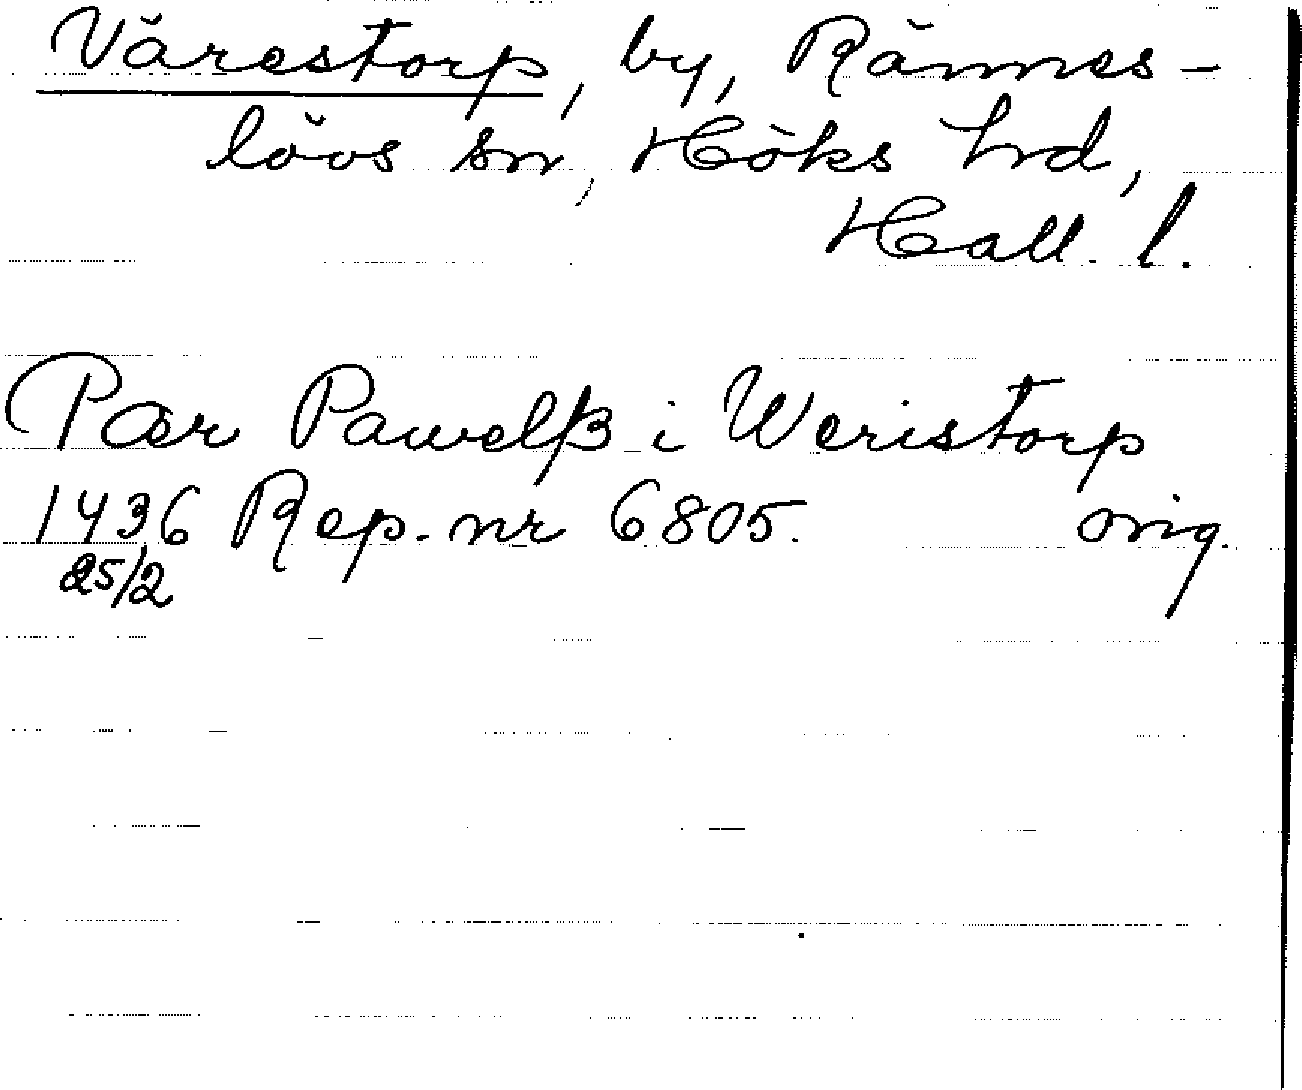 Värestorp, by, Rännes-
lövs sn, Höks hrd,
Hall. l.
Pær Pawelß i Weristorp
1436 Rep. nr 6805. orig.
25/2